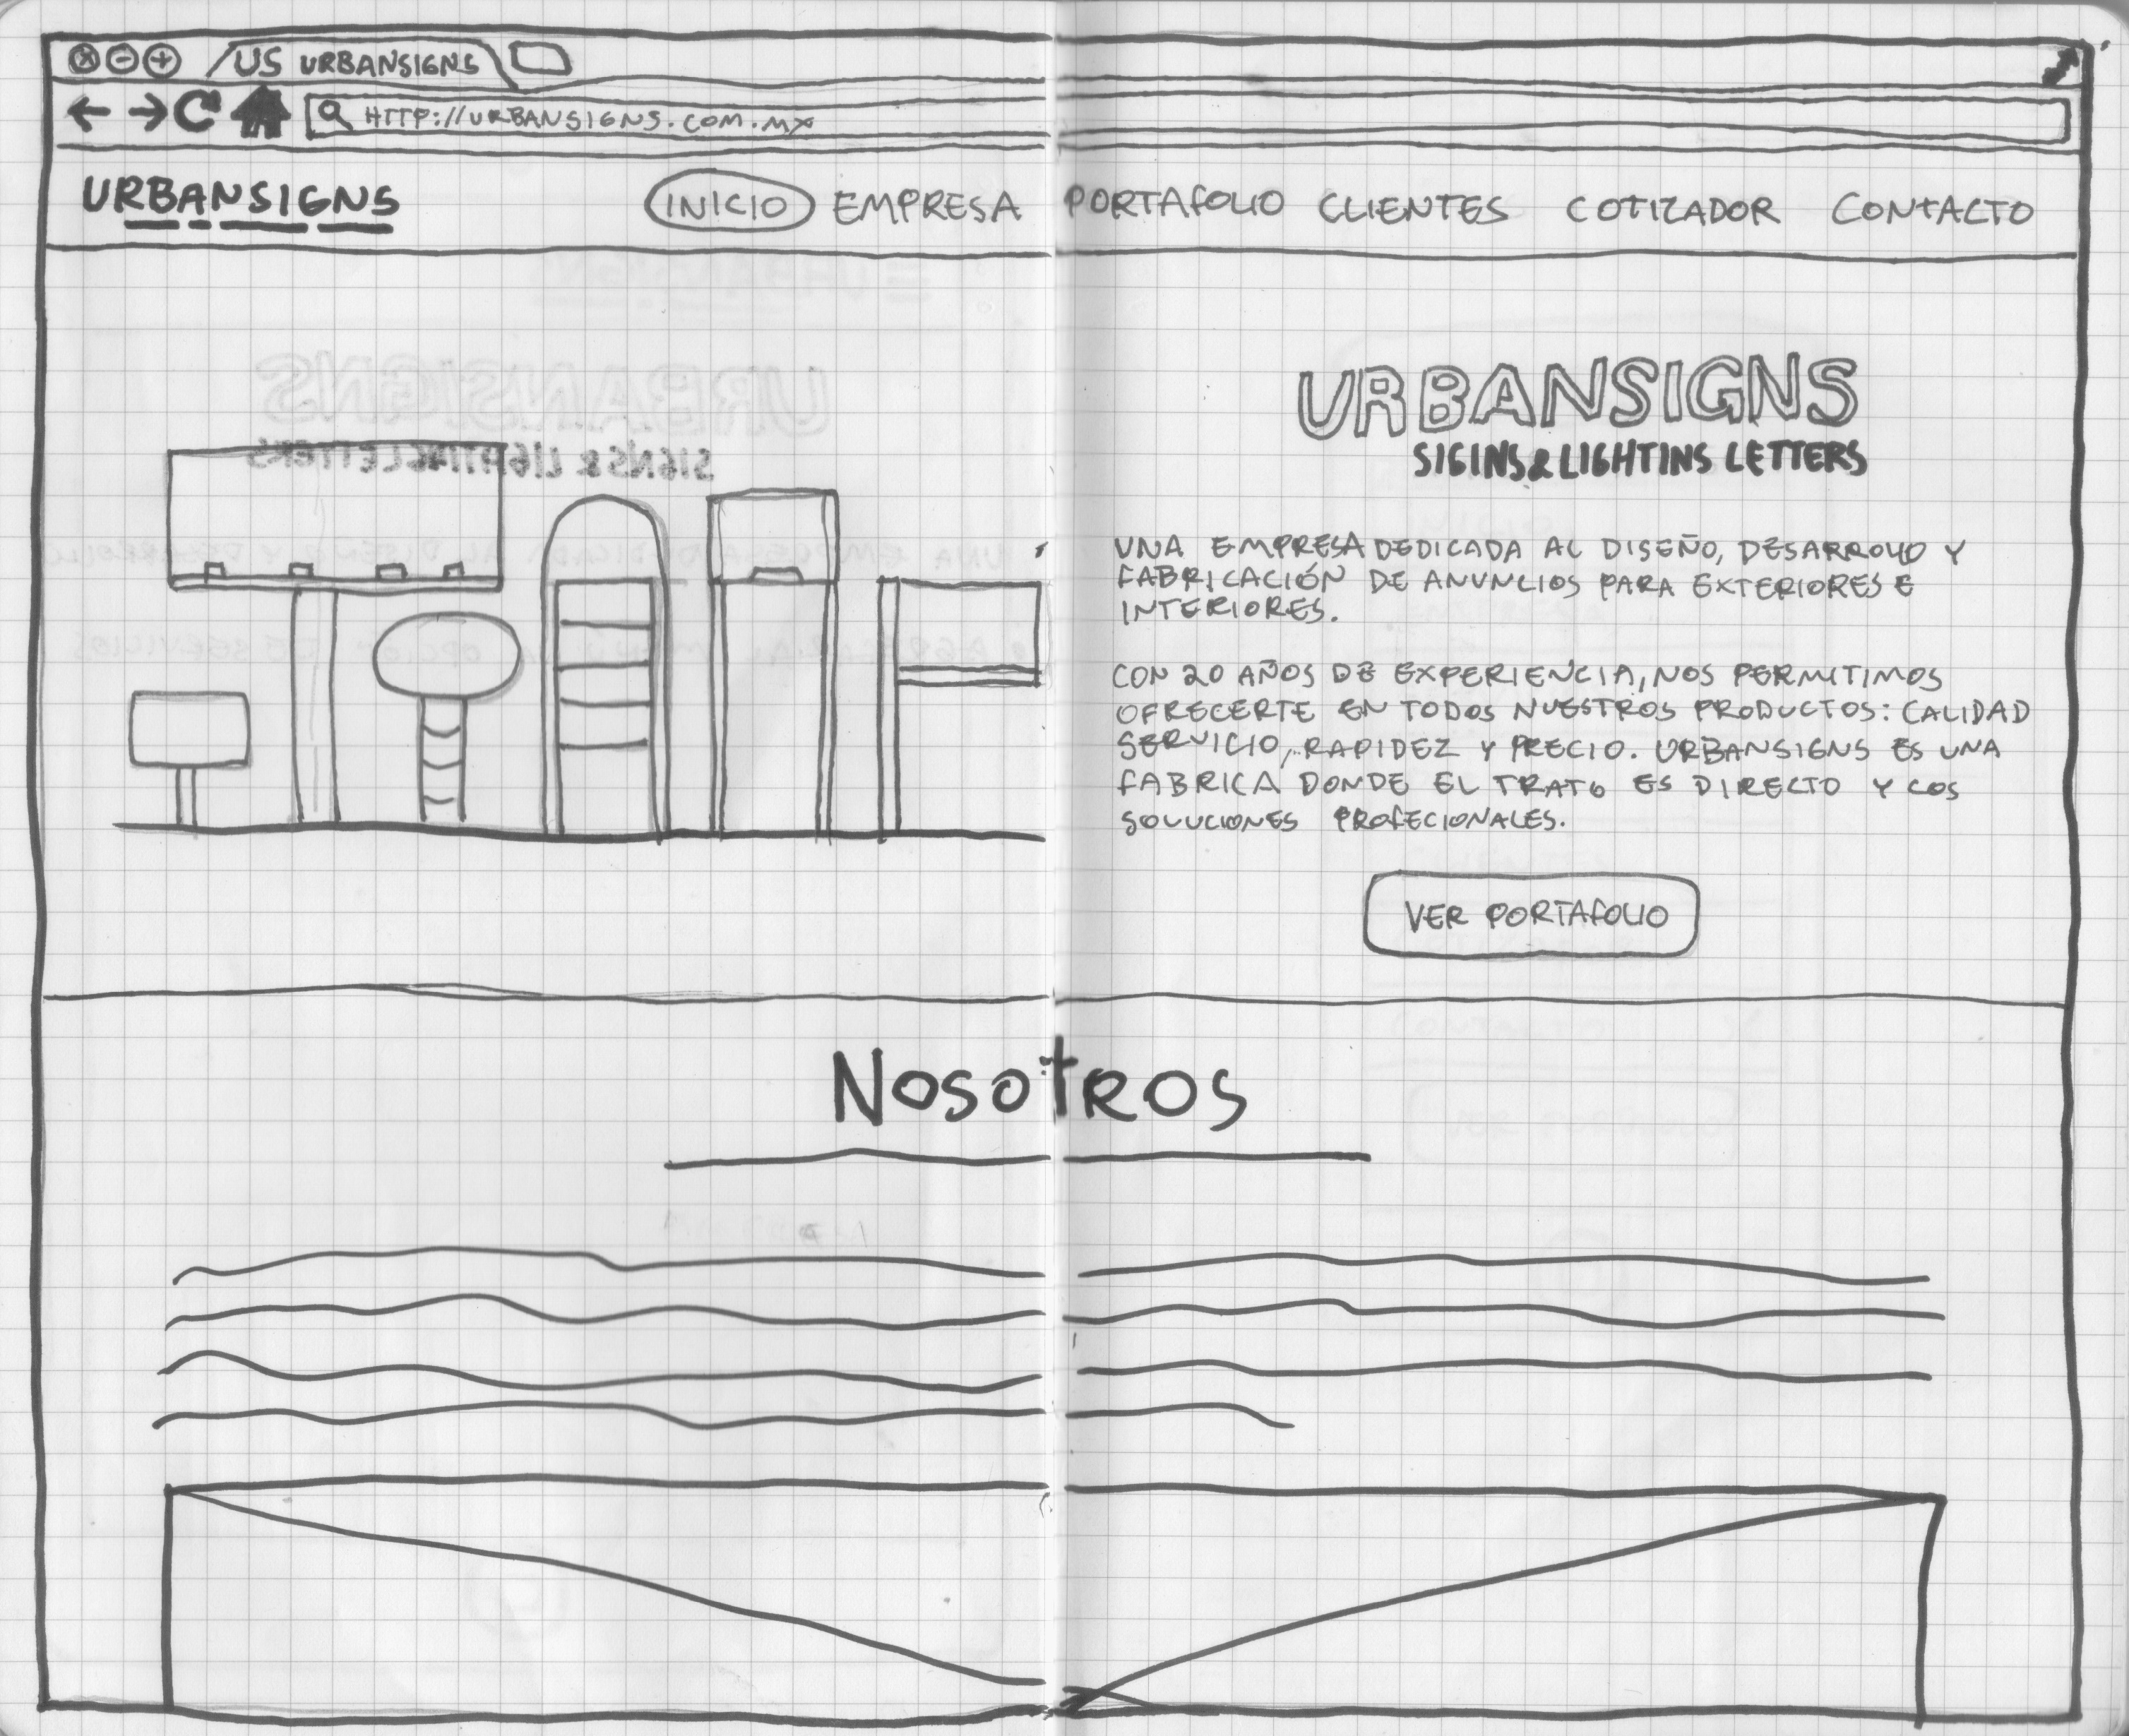 US URBANSIGNS
HTTP://URBANSIGNS.COM.MX
URBANSIGNS INICIO EMPRESA PORTAFOLIO CLIENTES COTIZADOR CONTACTO
URBANSIGNS
SIGINS&LIGHTINS LETTERS
UNA EMPRESA DEDICADA AL DISEÑO, DESARROLLO Y
FABRICACIÓN DE ANUNCIOS PARA EXTERIORES E
INTERIORES.
CON 20 AÑOS DE EXPERIENCIA, NOS PERMITIMOS
OFRECERTE EN TODOS NUESTROS PRODUCTOS: CALIDAD
SERVICIO, RAPIDEZ Y PRECIO. URBANSIGNS ES UNA
FABRICA DONDE EL TRATO ES DIRECTO Y COS
SOLUCIONES PROFECIONALES.
VER PORTAFOLIO
NOSOTROS